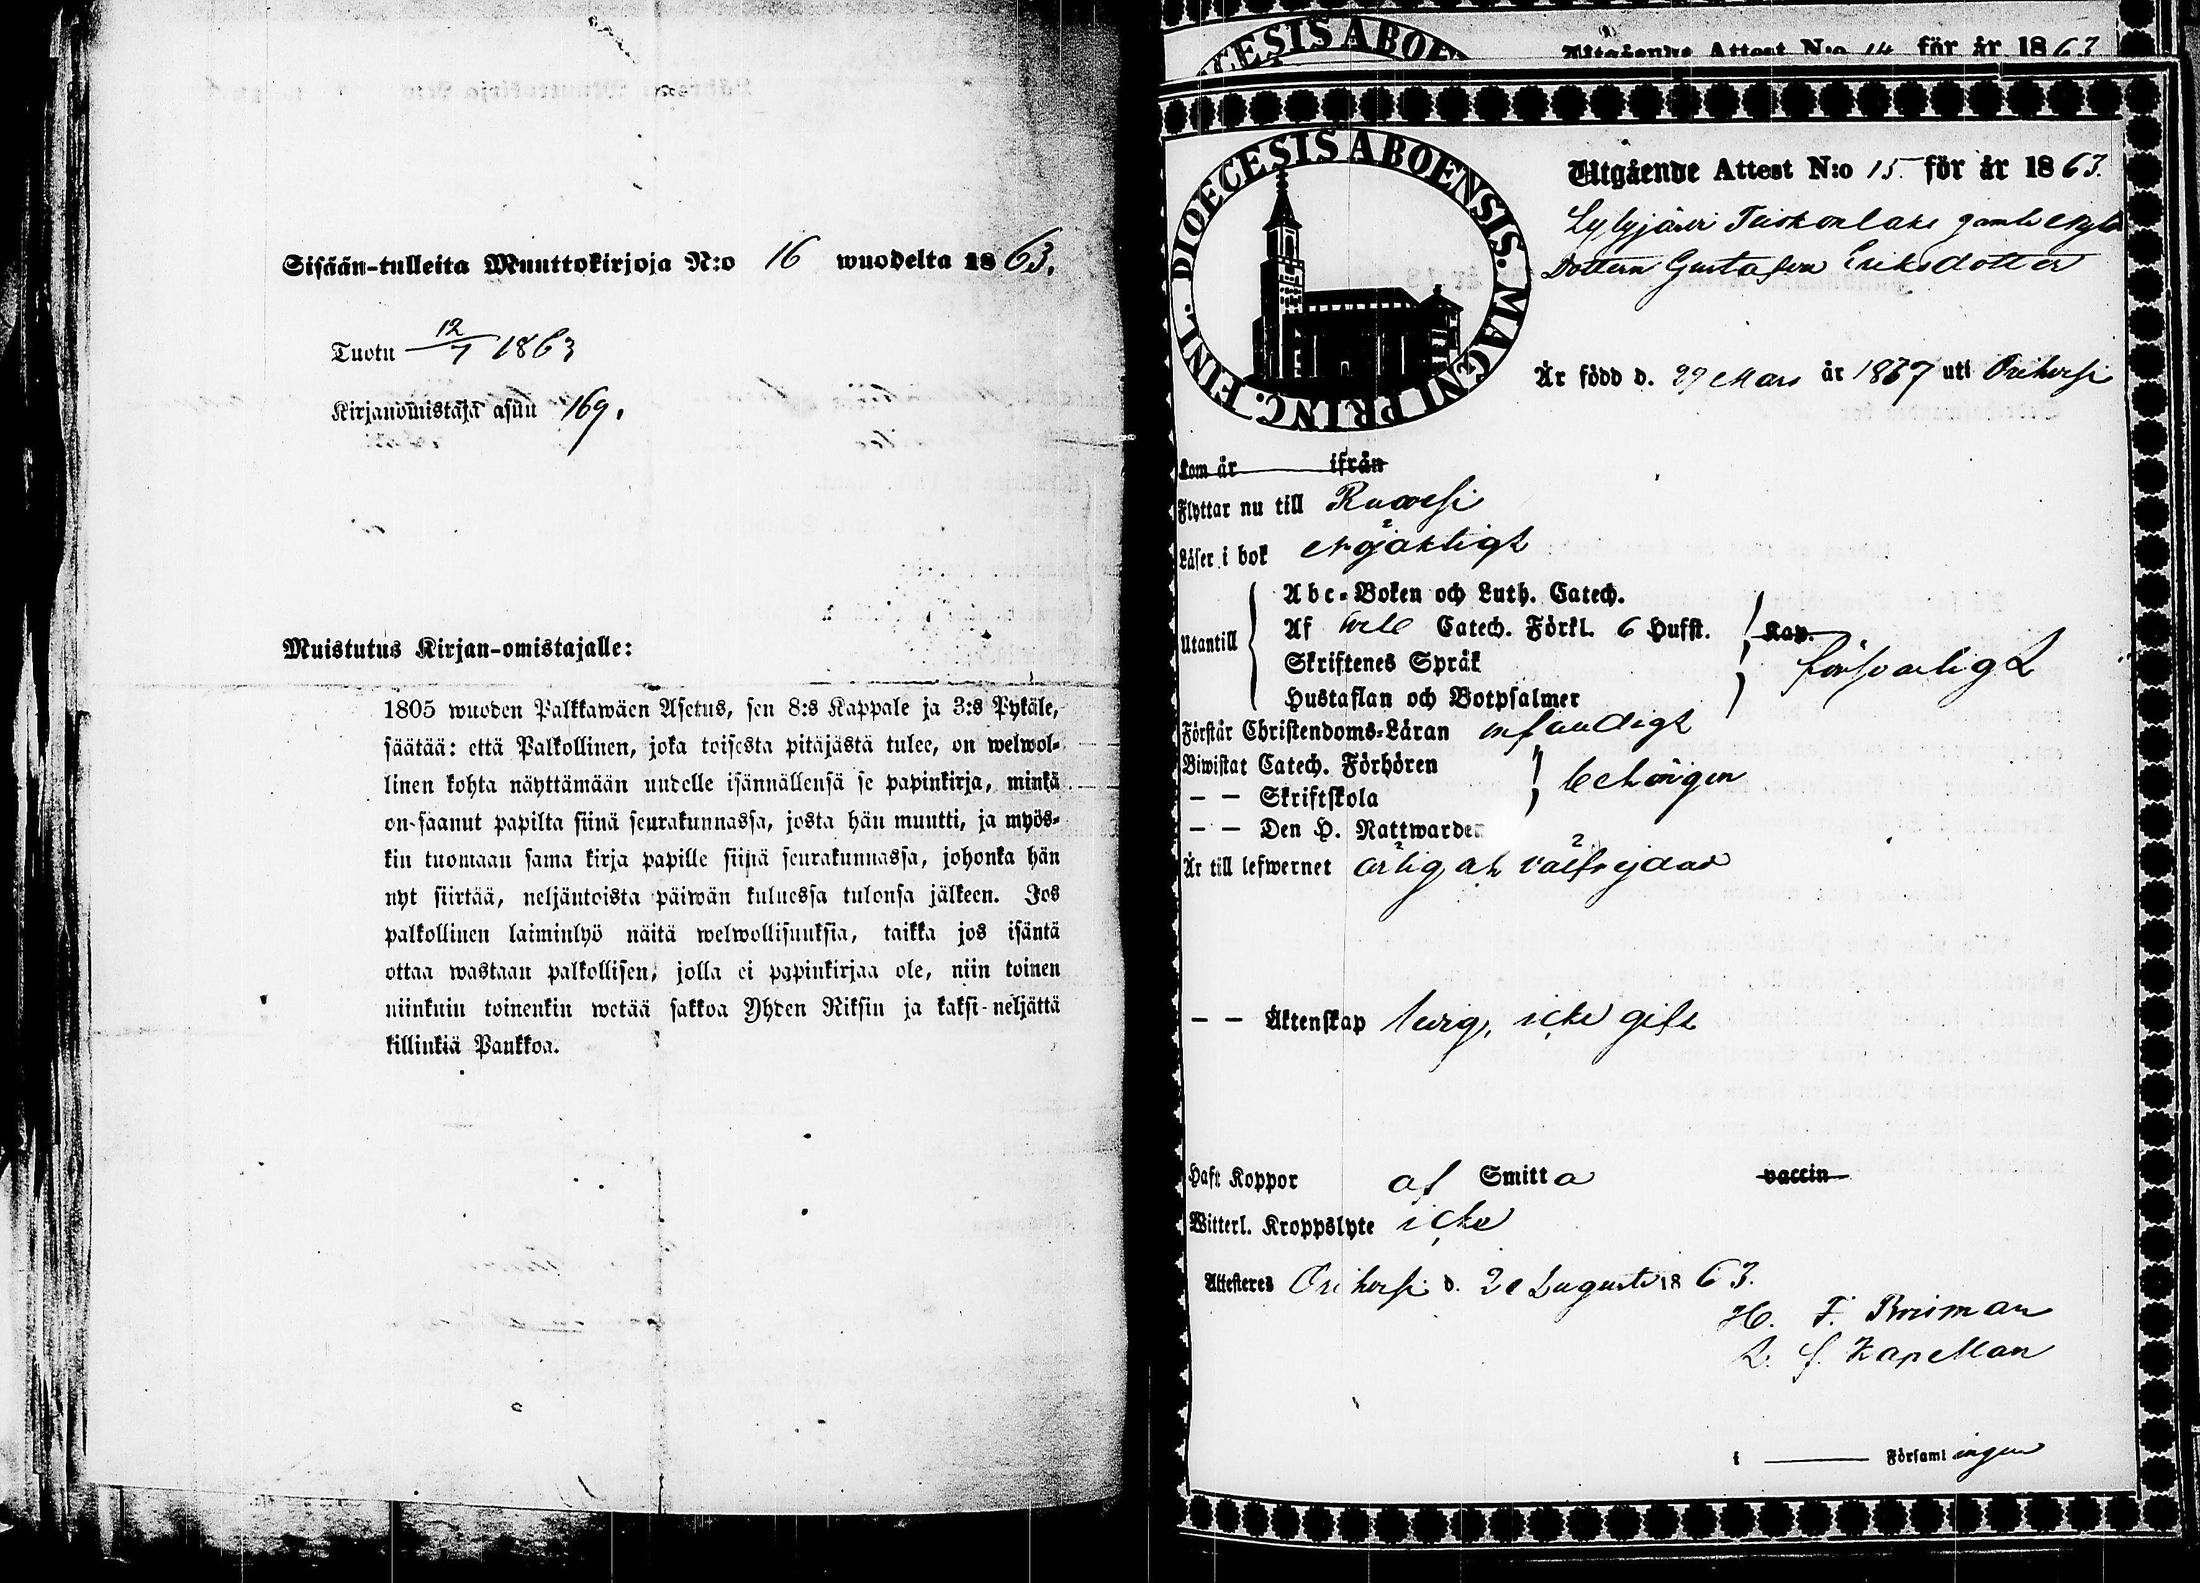 Sisään-tulleita Muuttokirjoja N:o 16 wuodelta 1863.
Tuotu 12/7 1863
Kirjanomistaja asuu 169.
Muistutus Kirjan-omistajalle:
1805 wuoden Palkkawäen Asetus, sen 8:s Kappale ja 3:s Pykäle,
säätää: että Palkollinen, joka toisesta pitäjästä tulee, on welwol-
linen kohta näyttämään uudelle isännällensä se papinkirja, minkä
on saanut papilta siinä seurakunnassa, josta hän muutti, ja myös-
kin tuomaan sama kirja papille siinä seurakunnassa, johonka hän
nyt siirtää, neljäntoista päiwän kuluessa tulonsa jälkeen. Jos
palkollinen laiminlyö näitä welwollisuuksia, taikka jos isäntä
ottaa wastaan palkollisen, jolla ei papinkirjaa ole, niin toinen
niinkuin toinenkin wetää sakkoa Yhden Riksin ja kaksi-neljättä
killinkiä Pankkoa.
Utgående Attest N:o 14 för år 1863
DIOECESIS ABOENSIS. MAGNI PRINC. FINL.
Utgående Attest N:o 15. för år 1863.
Lylyjärvi gamle
Dottern Gustafva Eriksdotter
Är född d. 29 Mars år 1837 uti Orihvesi
Kom år ifrån
Flyttar nu till Ruovesi
Läser i bok
Abc-Boken och Luth. Catech.
Utantill Af Catech. Förkl. 6 Hufst. Kap.
Skriftenes Språk försvarligt
Hustaflan och Botpsalmer
Förstår Christendoms-Läran enfaldigt
Biwistat Catech. Förhören
— — Skriftskola behörigen
— — Den H. Nattwarden
Är till lefwernet ärlig och välfrejdad
— — Äktenskap ledig, icke gift
Haft Koppor af Smitta vaccin
Witterl. Kroppslyte icke
Attesteres Orihvesi d. 20 Augusti 1863.
H. F.
Kapellan
i Församl ingen